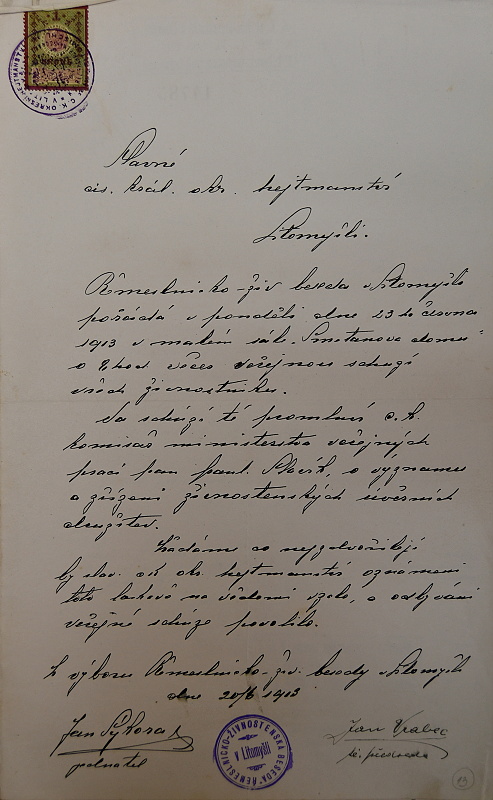 Slavné
cís. král. okr. hejtmanství
Litomyšli.
Řemeslnicko-živ beseda v Litomyšli
pořádá v pondělí dne 23 ho června
1913 v malém sále Smetanova domu
o 8 hod večer veřejnou schůzi
všech živnostníku.
Na schůzi té promluví c. k.
komisař ministerstva veřejných
prací pan paul. o významu
a zřízení živnostenských úvěrních
družstev.
Žádáme co nejzdvořileji
by slav. ck okr. hejtmanství oznámení
toto laskavě na vědomí vzalo, a odbývání
veřejné schůze povolilo.
Z výboru Řemeslnicko-živ. besedy v Litomyšli
dne 20/6 1913
Jan Sýkora
jednatel
ŘEMESLNICKO-ŽIVNOSTENSKÁ BESEDA v Litomyšli
Jan Vrabec
předseda